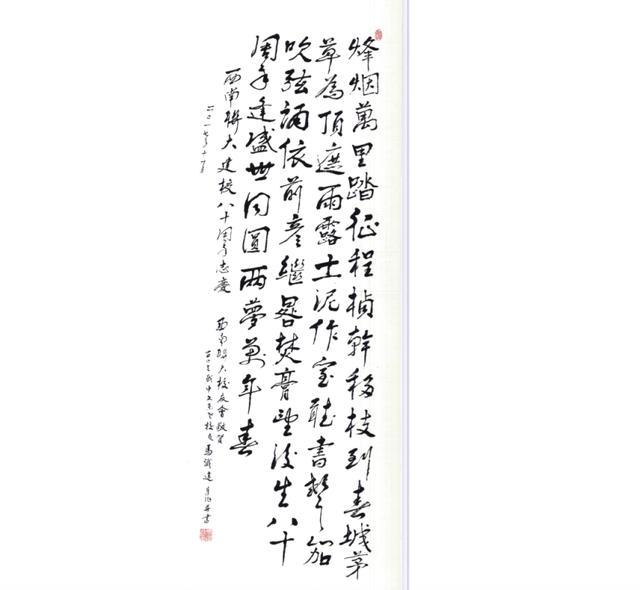 烽烟萬里踏征程楨幹移枝到春城茅
草為頂遮雨露土泥作室聽書聲笳
吹弦誦依前彥繼晷焚膏望後生八十
周年逢盛世同圓兩夢萬年春
西南聯大建校八十周年志慶 西南聯大校友會敬賀
二〇一七年十一月 校友馬識途 書